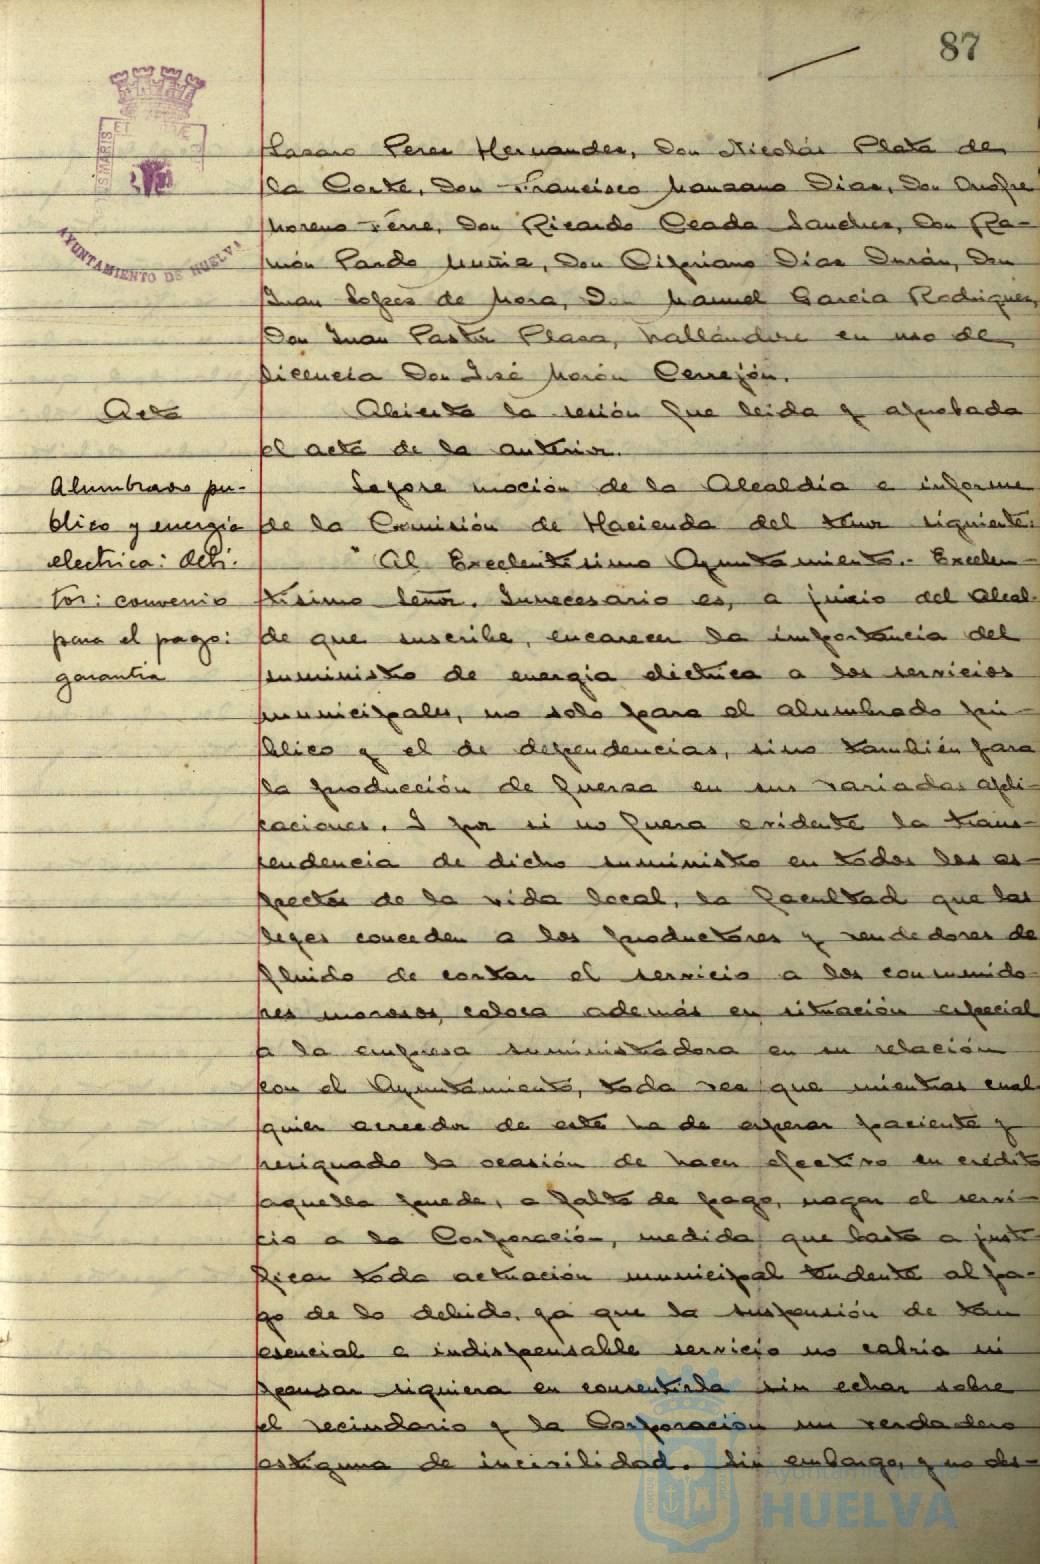 87
AYUNTAMIENTO DE HUELVA
Lazaro Perez Hernandez, Don Nicolás Plata de
la Corte, Don Francisco Manzano Díaz, Don Onofre
Moreno Ferre, Don Ricardo Ceada Sanchez, Don Ra-
món Pardo Muñiz, Don Cipriano Díaz Durán, Don
Juan Lopez de Mora, Don Manuel García Rodriguez,
Don Juan Pastor Plaza, hallándose en uso de
licencia Don José Morón Cerrejón.
Acta
Abierta la sesión fue leida y aprobada
el acta de la anterior.
Alumbrado pu-
blico y energia
electrica: debi-
tos: convenio
para el pago:
garantia
Leyose moción de la Alcaldía e informe
de la Comisión de Hacienda del tenor siguiente:
"Al Excelentisimo Ayuntamiento.- Excelen-
tísimo Señor. Innecesario es, a juicio del Alcal-
de que suscribe, encarecer la importancia del
suministro de energia electrica a los servicios
municipales, no solo para el alumbrado pú-
blico y el de dependencias, sino también para
la producción de fuerza en sus variadas apli-
caciones. Y por si no fuera evidente la trans-
cendencia de dicho suministro en todos los as-
pectos de la vida local, la facultad que las
leyes conceden a los productores y vendedores de
fluido de cortar el servicio a los consumido-
res morosos, coloca además en situación especial
a la empresa suministradora en su relación
con el Ayuntamiento, toda vez que mientras cual
quier acreedor de este ha de esperar paciente y
resignado la ocasión de hacer efectivo su crédito
aquella puede, a falta de pago, negar el servi-
cio a la Corporación, medida que basta a justi-
ficar toda actuación municipal tendente al pa-
go de lo debido, ya que la suspensión de tan
esencial e indispensable servicio no cabria ni
pensar siquiera en consentirla sin echar sobre
el vecindario y la Corporación un verdadero
estigma de incivilidad. Sin embargo, y no obs-
Ayuntamiento de
HUELVA